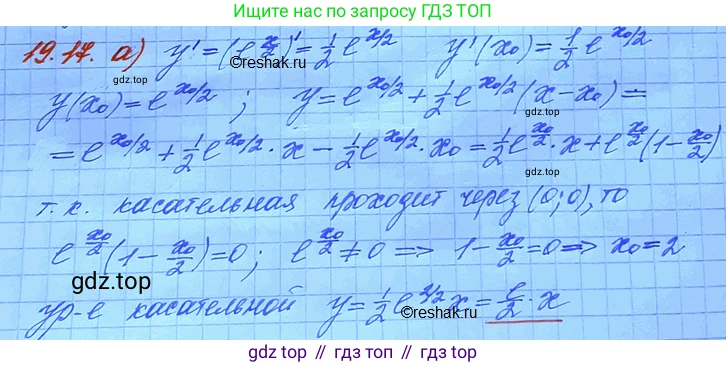 Ищите нас по запросу ГДЗ ТОП
19.17. а) y' = (e^(x/2))' = 1/2 e^(x/2)   y'(x₀) = 1/2 e^(x₀/2)
gdz.top ©reshak.ru
y(x₀) = e^(x₀/2) ; y = e^(x₀/2) + 1/2 e^(x₀/2) (x - x₀) =
= e^(x₀/2) + 1/2 e^(x₀/2) · x - 1/2 e^(x₀/2) · x₀ = 1/2 e^(x₀/2) · x + e^(x₀/2) (1 - x₀/2)
т. к. касательная проходит через (0; 0), то
e^(x₀/2) (1 - x₀/2) = 0 ; e^(x₀/2) ≠ 0 => 1 - x₀/2 = 0 => x₀ = 2
gdz.top ©reshak.ru
ур-е касательной y = 1/2 e^(2/2) x = e/2 · x
gdz top // гдз топ // gdz top // гдз топ